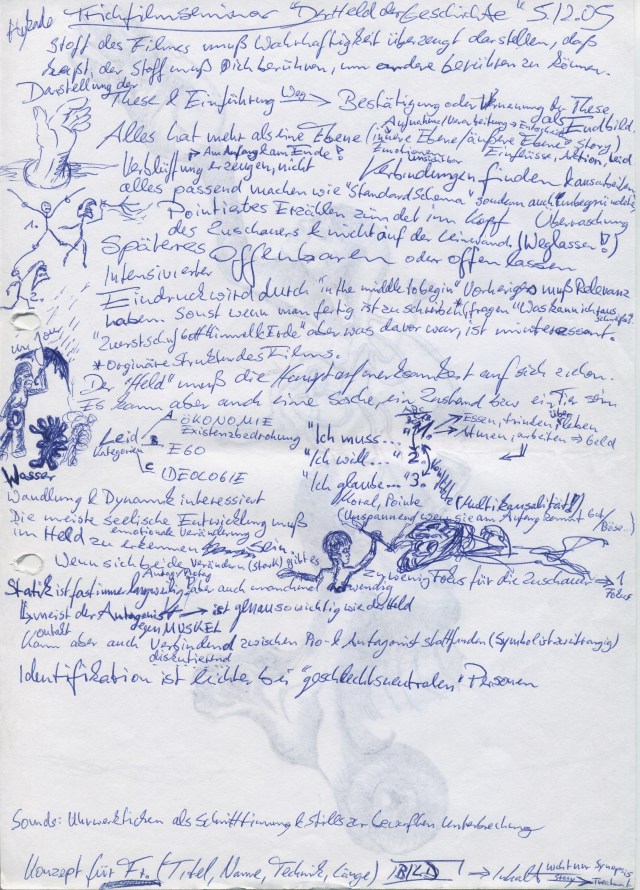 Trickfilmseminar "Der Held der Geschichte" 5.12.05
Stoff des Filmes muß Wahrhaftigkeit überzeugt darstellen, daß
heißt, der Stoff muß Dich berühren, um andere berühren zu können.
Darstellung der
These & Einführung Weg → Bestätigung oder Verneinung der These
als Endbild
Alles hat mehr als eine Ebene (innere Ebene/äußere Ebene → story)
Emotionen
Einflüsse, Aktion, Leid
Am Anfang kam Ende!
Verblüffung erzeugen, nicht
Verbindungen finden & ausarbeiten
alles passend machen wie "Standardschema" sondern auch
1.
Pointiertes Erzählen zündet im Kopf
Überraschung
des Zuschauers & nicht auf der Leinwand (Weglassen!)
Späteres Offenbaren oder offen lassen
2.
Intensivierter
Eindruck wird durch "in the middle to begin" Vorheriges muß Relevanz
haben. Sonst wenn man fertig ist zu schreiben fragen "Was kann ich
"Zuerst schuf Gott Himmel & Erde" aber was davor war, ist uninteressant.
* Originäre Struktur des Films.
Der "Held" muß die Hauptaufmerksamkeit auf sich ziehen.
Es kann aber auch eine Sache, ein Zustand bzw ein Tier sein
A ÖKONOMIE
Existenzbedrohung
"Ich muss..." 1.
→ Essen, trinken, überleben
→ Atmen, arbeiten → Geld
Leid
Kategorien
B EGO
"Ich will..." 2.
C IDEOLOGIE
"Ich glaube..." 3.
Wasser
Wandlung & Dynamik interessiert
Moral, Pointe
(Multikausalität!)
Die meiste seelische Entwicklung muß
(Unspannend wenn sie am Anfang kommt Gut/
Böse..)
emotionale Veränderung
im Held zu erkennen sein.
Wenn sich beide verändern (stark) gibt es
zu wenig Fokus für die Zuschauer → 1
Fokus
Statik ist fast immer langweilig, aber auch manchmal notwendig
Zumeist der Antagonist → ist genauso wichtig wie der Held
GegenMUSKEL
Kann aber auch Verbindend zwischen Pro- & Antagonist stattfinden (Symbol ist zweitrangig)
diskutierend
Identifikation ist leichter bei "geschlechtsneutralen" Personen
Sounds: Uhrwerkticken als Schritttimung & Stille zur Unterbrechung
Konzept für Fr. (Titel, Name, Technik, Länge) BILD → Inhalt
nicht nur Synopsis